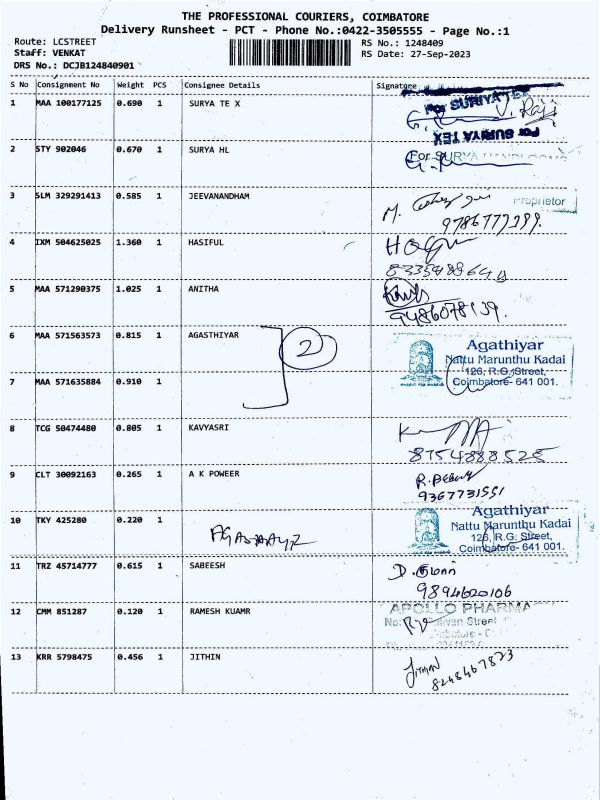 THE PROFESSIONAL COURIERS, COIMBATORE
Delivery Runsheet - PCT - Phone No.:0422-3505555 - Page No.:1
Route: LCSTREET RS No.: 1248409
Staff: VENKAT RS Date: 27-Sep-2023
DRS No.: DCJB124840901
S No Consignment No Weight PCS Consignee Details Signature
1 MAA 100177125 0.690 1 SURYA TE X For SURIYA TEX
For SURIYA TEX
2 STY 902046 0.670 1 SURYA HL For SURYA HANDLOOMS
3 SLM 329291413 0.585 1 JEEVANANDHAM M. Proprietor
9786777399.
4 IXM 504625025 1.360 1 HASIFUL
5 MAA 571290375 1.025 1 ANITHA
9486078139.
6 MAA 571563573 0.815 1 AGASTHIYAR 2 Agathiyar
Nattu Marunthu Kadai
126, R.G. Street,
7 MAA 571635884 0.910 1 Coimbatore- 641 001.
8 TCG 50474480 0.805 1 KAVYASRI
8754888525
9 CLT 30092163 0.265 1 A K POWEER
9367731551
10 TKY 425280 0.220 1 Agathiyar
Nattu Marunthu Kadai
126, R.G. Street,
Coimbatore- 641 001.
11 TRZ 45714777 0.615 1 SABEESH D.
9894620106
12 CMM 851287 0.120 1 RAMESH KUAMR APOLLO PHARMA
No: Street
13 KRR 5798475 0.456 1 JITHIN JITHIN
8248467823